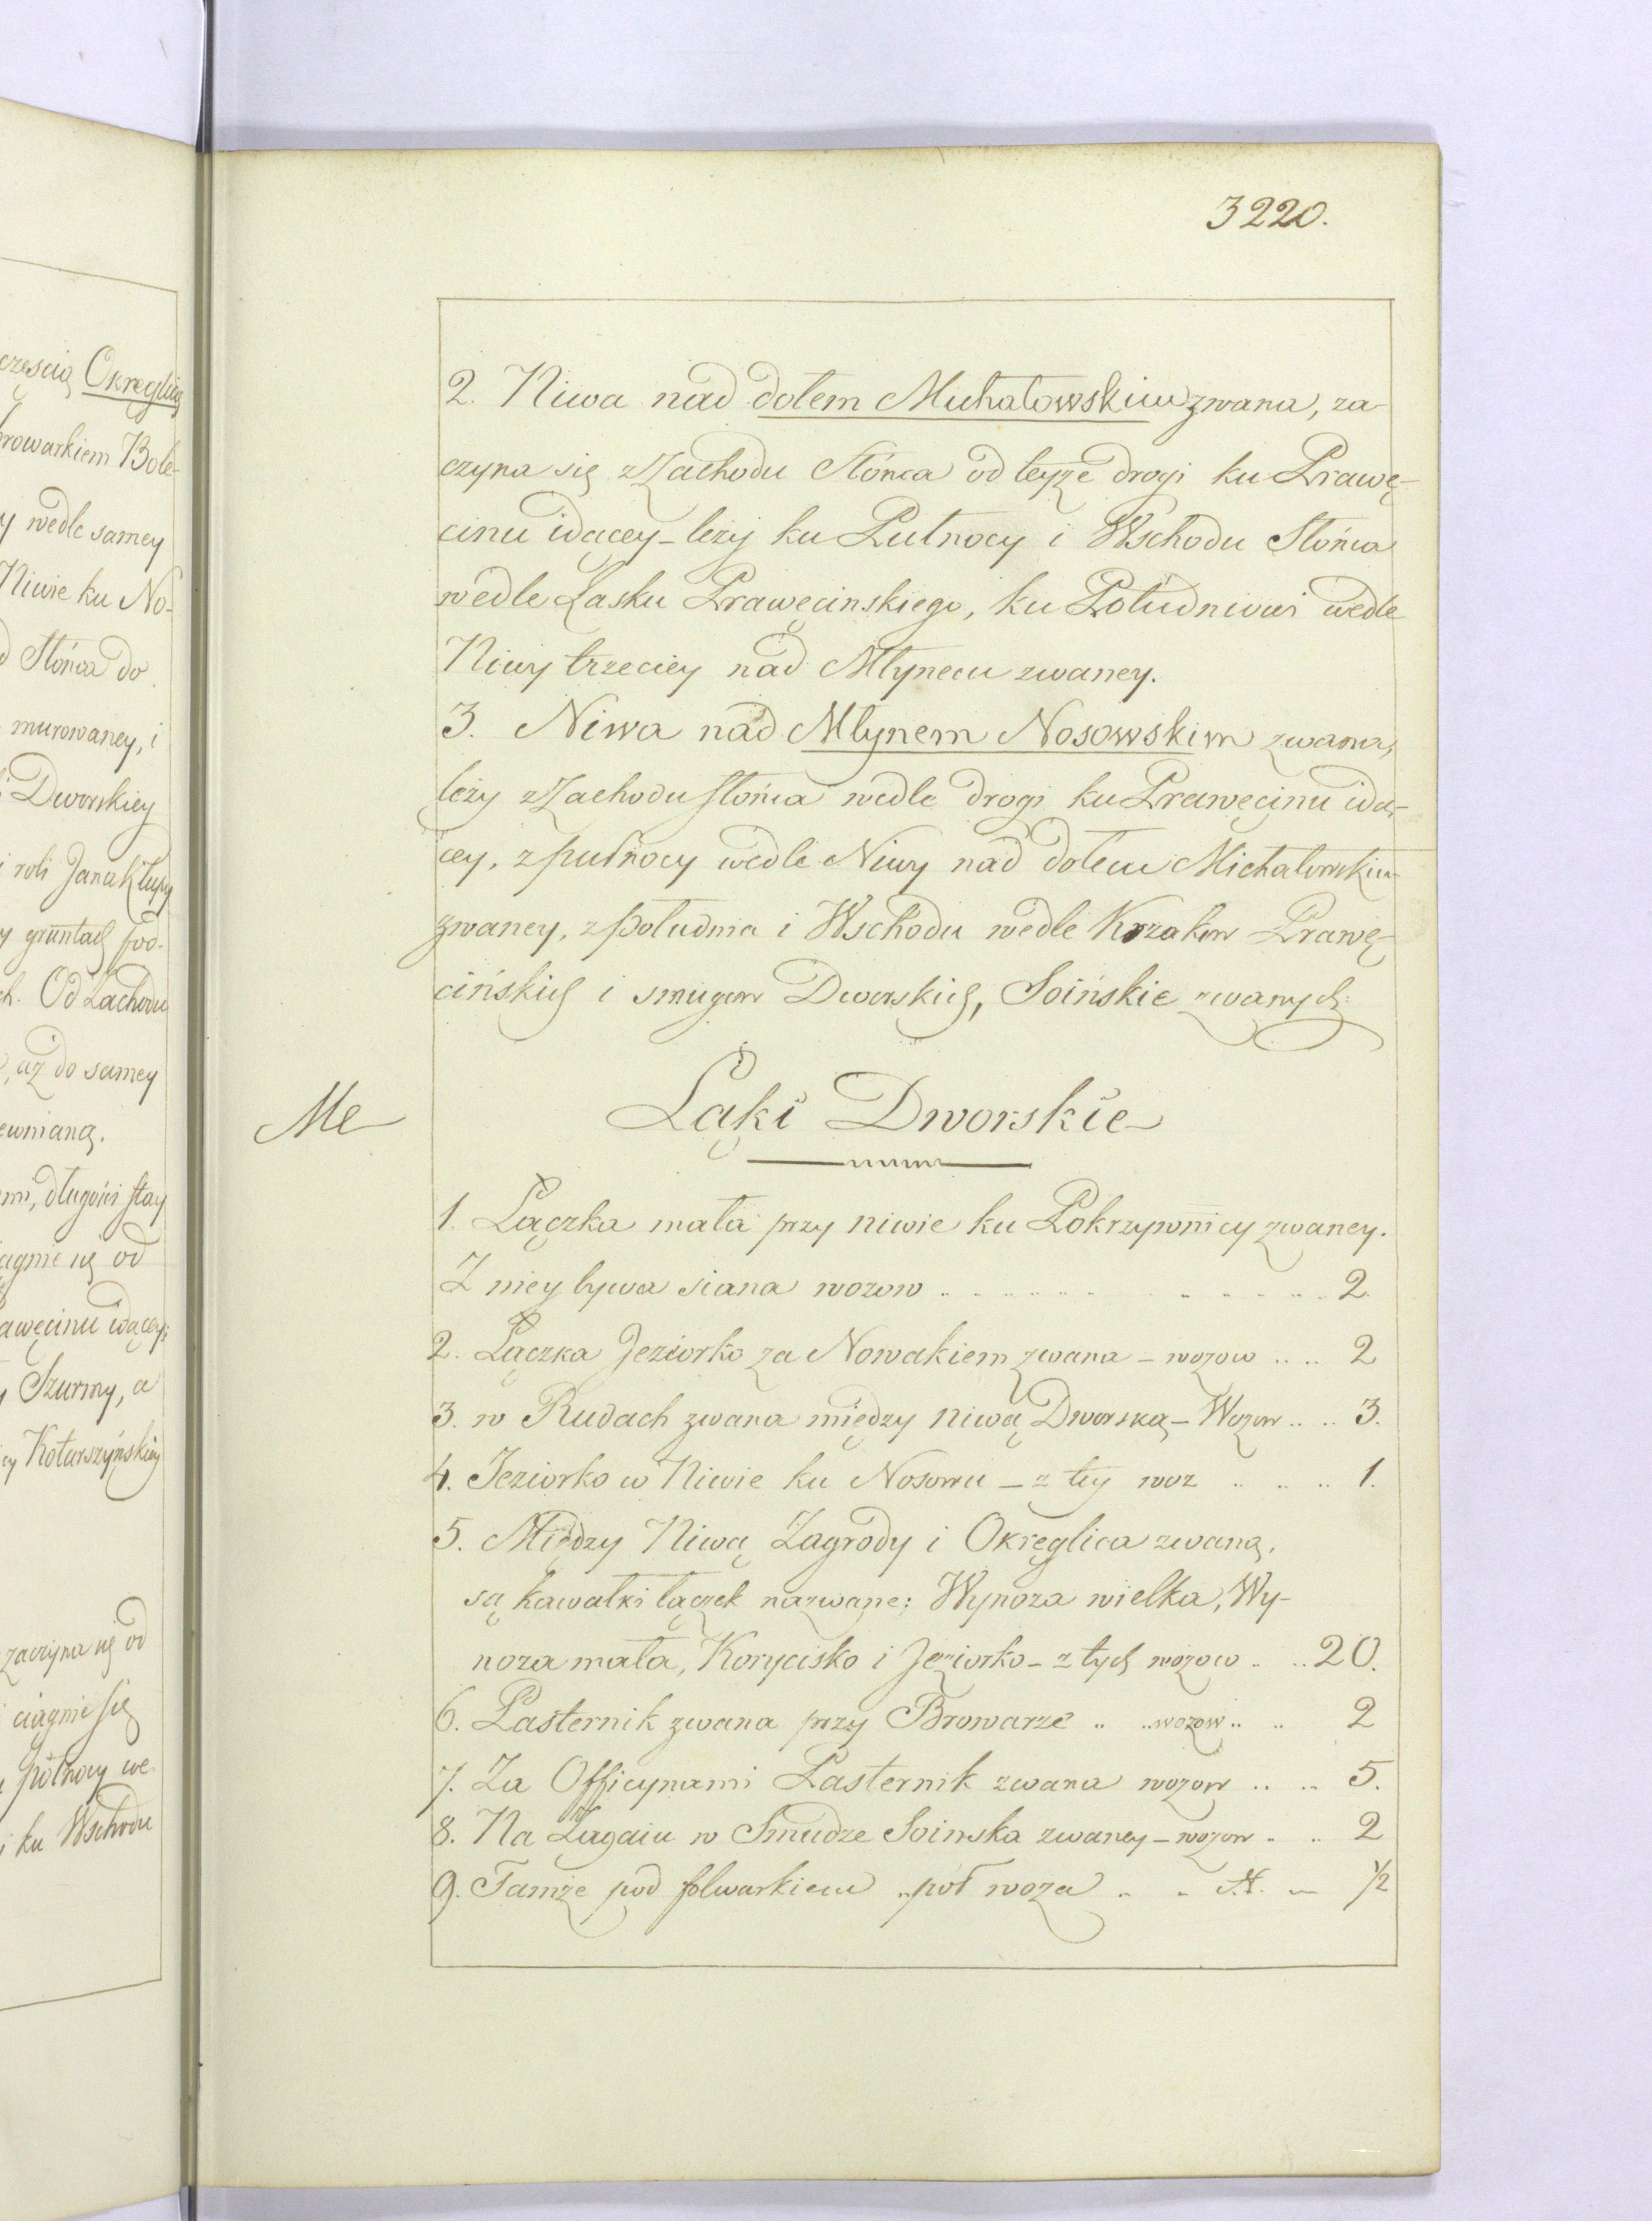 3220.
2. Niwa nad dołem Michałowskim zwana, za-
czyna się z Zachodu Słońca od teyże drogi ku Prawę-
cinu idącey – leży ku Pułnocy i Wschodu Słońca
wedle Lasku Prawęcinskiego, ku Południowi wedle
Niwy trzeciey nad Młynem zwaney.
3. Niwa nad Młynem Nosowskim zwana,
leży z Zachodu słońca wedle drogi ku Prawęcinu idą-
cey, z pułnocy wedle Niwy nad dołem Michałowskim
zwaney, z południa i Wschodu wedle Krzakow Prawę-
cińskich i smugow Dworskich, Soińskie zwanych.
Me
Łąki Dworskie
1. Łączka mała przy niwie ku Pokrzywnicy zwaney.
Z niey bywa siana wozow .. .. .. .. 2.
2. Łączka Jeziorko za Nowakiem zwana – wozow .. .. 2
3. w Rudach zwana między niwą Dworską – Wozow .. .. 3.
4. Jeziorko w Niwie ku Nosowu – z tey woz .. .. .. 1.
5. Między Niwą Zagrody i Okręglica zwaną,
są kawałki łączek nazwane: Wynoza wielka, Wy-
noza mała, Korycisko i Jeziorko – z tych wozow .. .. 20.
6. Pasternik zwana przy Browarze .. .. wozow .. .. 2
7. Za Officynami Pasternik zwana wozow .. .. 5.
8. Na Ługaiu w Smudze Soinska zwaney – wozow .. .. 2
9. Tamże pod folwarkiem .. poł woza .. .. N. – 1/2
częscią Okręglicą
browarkiem Bole-
y wedle samey
Niwie ku No-
d Słońca do
murowaney, i
i Dworskiey
i roli Jana Kłupy
y gruntach pod-
ch. Od Zachodu
, aż do samey
ewnianą.
mi, długości stay
iągnie się od
awęcinu idącey;
y Szurmy, a
cy Kotarszyńskiey
zaczyna się od
ciągnie się
z północy we
i ku Wschodu